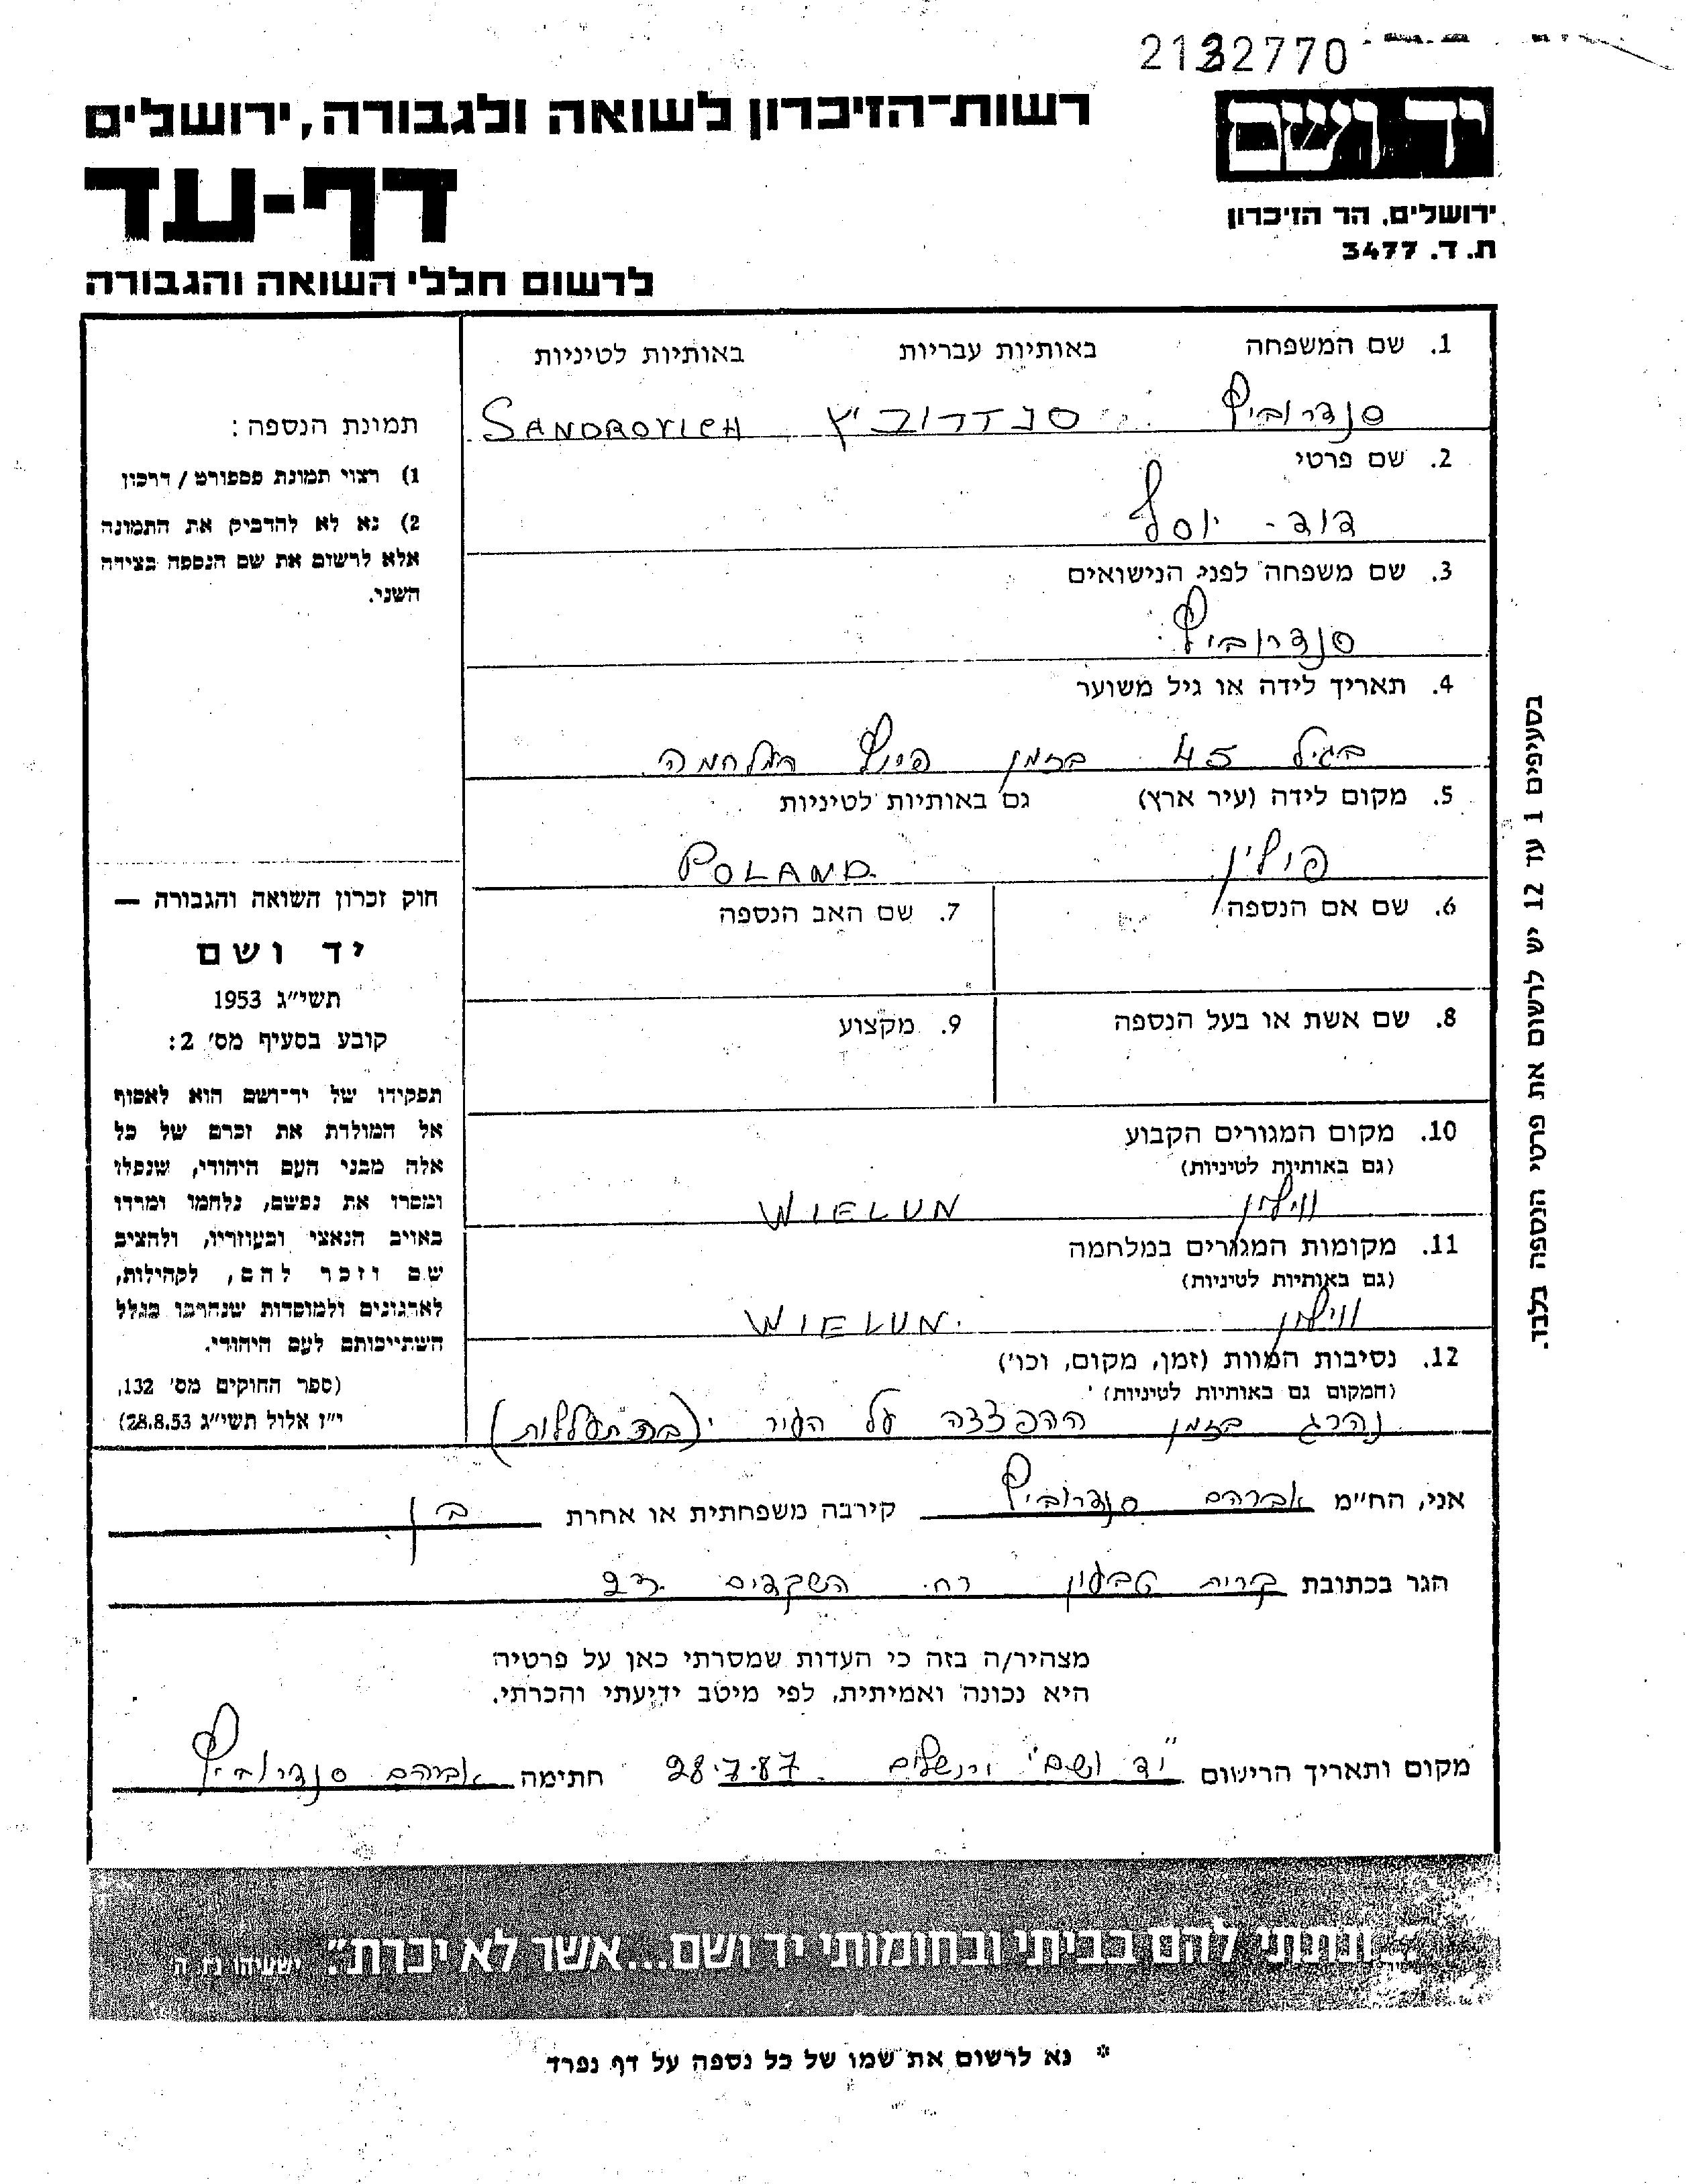 2132770
יד ושם
רשות־הזיכרון לשואה ולגבורה, ירושלים
דף-עד
ירושלים, הר הזיכרון
ת. ד. 3477
לרשום חללי השואה והגבורה
1. שם המשפחה באותיות עבריות באותיות לטיניות
סנדרוביץ סנדרוביץ SANDROVICH
2. שם פרטי
דוד - יוסף
3. שם משפחה לפני הנישואים
סנדרוביץ
4. תאריך לידה או גיל משוער
בגיל 45 בזמן פרוץ המלחמה
5. מקום לידה (עיר ארץ) גם באותיות לטיניות
פולין POLAND
6. שם אם הנספה 7. שם האב הנספה
8. שם אשת או בעל הנספה 9. מקצוע
10. מקום המגורים הקבוע
(גם באותיות לטיניות)
ווילון WIELUN
11. מקומות המגורים במלחמה
(גם באותיות לטיניות)
ווילון WIELUN.
12. נסיבות המוות (זמן, מקום, וכו')
(המקום גם באותיות לטיניות)
נהרג בזמן ההפצצה על העיר (בהתעללות)
תמונת הנספה:
1) רצוי תמונת פספורט / דרכון
2) נא לא להדביק את התמונה
אלא לרשום את שם הנספה בצידה
השני.
חוק זכרון השואה והגבורה —
יד ושם
תשי״ג 1953
קובע בסעיף מס׳ 2:
תפקידו של יד־ושם הוא לאסוף
אל המולדת את זכרם של כל
אלה מבני העם היהודי, שנפלו
ומסרו את נפשם, נלחמו ומרדו
באויב הנאצי ובעוזריו, ולהציב
שם וזכר להם, לקהילות,
לארגונים ולמוסדות שנחרבו בגלל
השתייכותם לעם היהודי.
(ספר החוקים מס׳ 132,
י״ז אלול תשי״ג 28.8.53)
בסעיפים 1 עד 12 יש לרשום את פרטי הנספה בלבד.
אני, הח״מ אברהם סנדרוביץ קירבה משפחתית או אחרת בן
הגר בכתובת קרית טבעון רח. השקדים 23
מצהיר/ה בזה כי העדות שמסרתי כאן על פרטיה
היא נכונה ואמיתית, לפי מיטב ידיעתי והכרתי.
מקום ותאריך הרישום "יד ושם" ירושלים 28.7.87 חתימה אברהם סנדרוביץ
...ונתתי להם בביתי ובחומותי יד ושם...אשר לא יכרת״. ישעיהו נו ה
* נא לרשום את שמו של כל נספה על דף נפרד